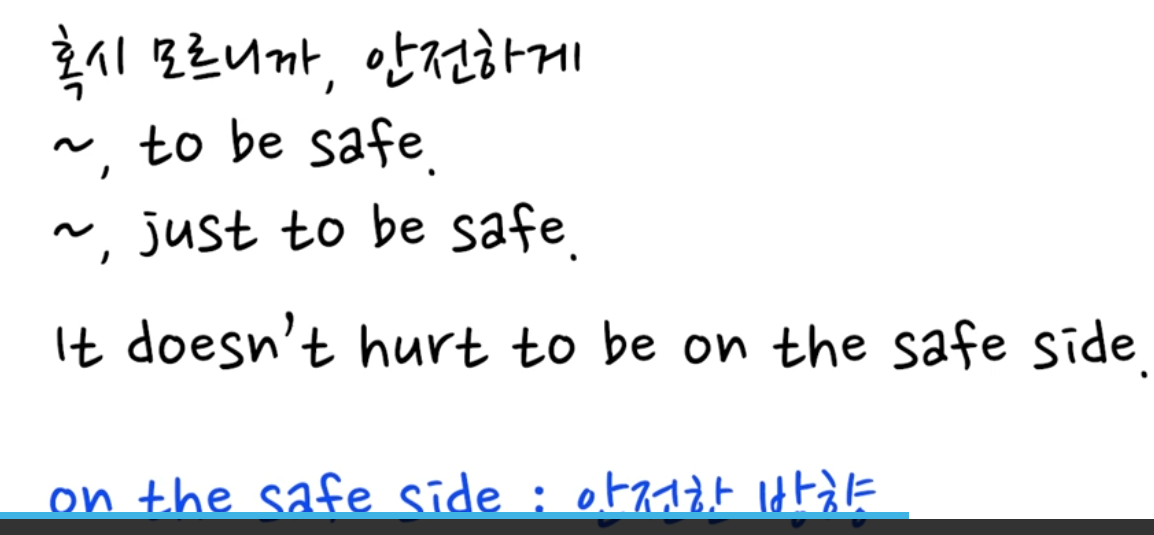 혹시 모르니까, 안전하게
~, to be safe.
~, just to be safe.
It doesn't hurt to be on the safe side.
on the safe side : 안전한 방향